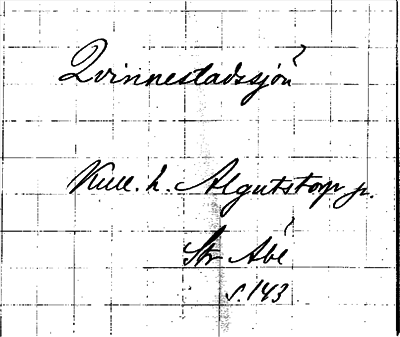 Qvinnestadssjön
Kull. h. Algutstorp p.
Str Abé
s. 143